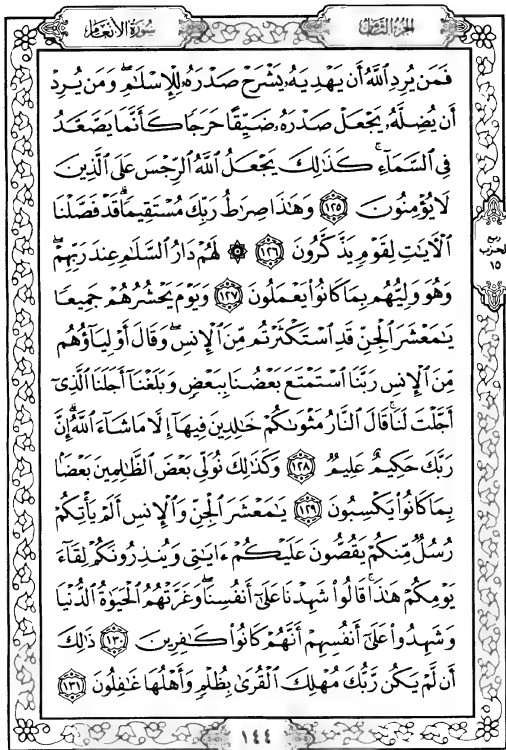 سُورَةُ الأَنْعَامِ
الجُزْءُ الثَّامِنُ
فَمَن يُرِدِ ٱللَّهُ أَن يَهْدِيَهُۥ يَشْرَحْ صَدْرَهُۥ لِلْإِسْلَٰمِۖ وَمَن يُرِدْ
أَن يُضِلَّهُۥ يَجْعَلْ صَدْرَهُۥ ضَيِّقًا حَرَجًا كَأَنَّمَا يَصَّعَّدُ
فِى ٱلسَّمَآءِۚ كَذَٰلِكَ يَجْعَلُ ٱللَّهُ ٱلرِّجْسَ عَلَى ٱلَّذِينَ
لَا يُؤْمِنُونَ ١٢٥ وَهَٰذَا صِرَٰطُ رَبِّكَ مُسْتَقِيمًاۗ قَدْ فَصَّلْنَا
ٱلْءَايَٰتِ لِقَوْمٍ يَذَّكَّرُونَ ١٢٦ ۞ لَهُمْ دَارُ ٱلسَّلَٰمِ عِندَ رَبِّهِمْۖ
وَهُوَ وَلِيُّهُم بِمَا كَانُوا۟ يَعْمَلُونَ ١٢٧ وَيَوْمَ يَحْشُرُهُمْ جَمِيعًا
يَٰمَعْشَرَ ٱلْجِنِّ قَدِ ٱسْتَكْثَرْتُم مِّنَ ٱلْإِنسِۖ وَقَالَ أَوْلِيَآؤُهُم
مِّنَ ٱلْإِنسِ رَبَّنَا ٱسْتَمْتَعَ بَعْضُنَا بِبَعْضٍ وَبَلَغْنَآ أَجَلَنَا ٱلَّذِىٓ
أَجَّلْتَ لَنَاۚ قَالَ ٱلنَّارُ مَثْوَىٰكُمْ خَٰلِدِينَ فِيهَآ إِلَّا مَا شَآءَ ٱللَّهُۗ إِنَّ
رَبَّكَ حَكِيمٌ عَلِيمٌ ١٢٨ وَكَذَٰلِكَ نُوَلِّى بَعْضَ ٱلظَّٰلِمِينَ بَعْضًۢا
بِمَا كَانُوا۟ يَكْسِبُونَ ١٢٩ يَٰمَعْشَرَ ٱلْجِنِّ وَٱلْإِنسِ أَلَمْ يَأْتِكُمْ
رُسُلٌ مِّنكُمْ يَقُصُّونَ عَلَيْكُمْ ءَايَٰتِى وَيُنذِرُونَكُمْ لِقَآءَ
يَوْمِكُمْ هَٰذَاۚ قَالُوا۟ شَهِدْنَا عَلَىٰٓ أَنفُسِنَاۖ وَغَرَّتْهُمُ ٱلْحَيَوٰةُ ٱلدُّنْيَا
وَشَهِدُوا۟ عَلَىٰٓ أَنفُسِهِمْ أَنَّهُمْ كَانُوا۟ كَٰفِرِينَ ١٣٠ ذَٰلِكَ
أَن لَّمْ يَكُن رَّبُّكَ مُهْلِكَ ٱلْقُرَىٰ بِظُلْمٍ وَأَهْلُهَا غَٰفِلُونَ ١٣١
ربع
الحزب
١٥
١٤٤